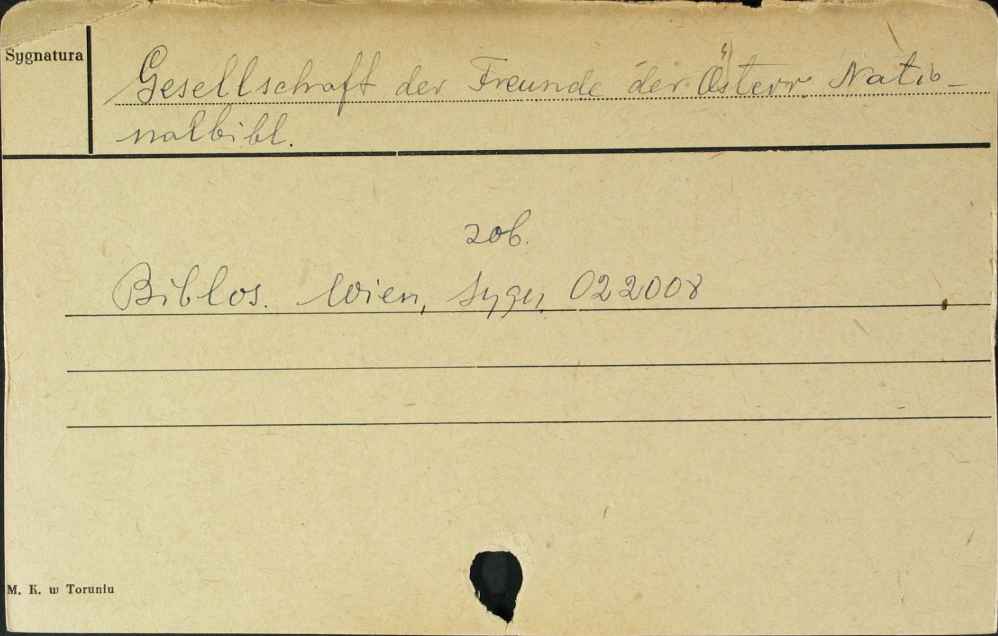 Sygnatura
Gesellschaft der Freunde der Österr. Natio-
nalbibl.
zob.
Biblos. Wien, Sygn. 022008
M. K. w Toruniu